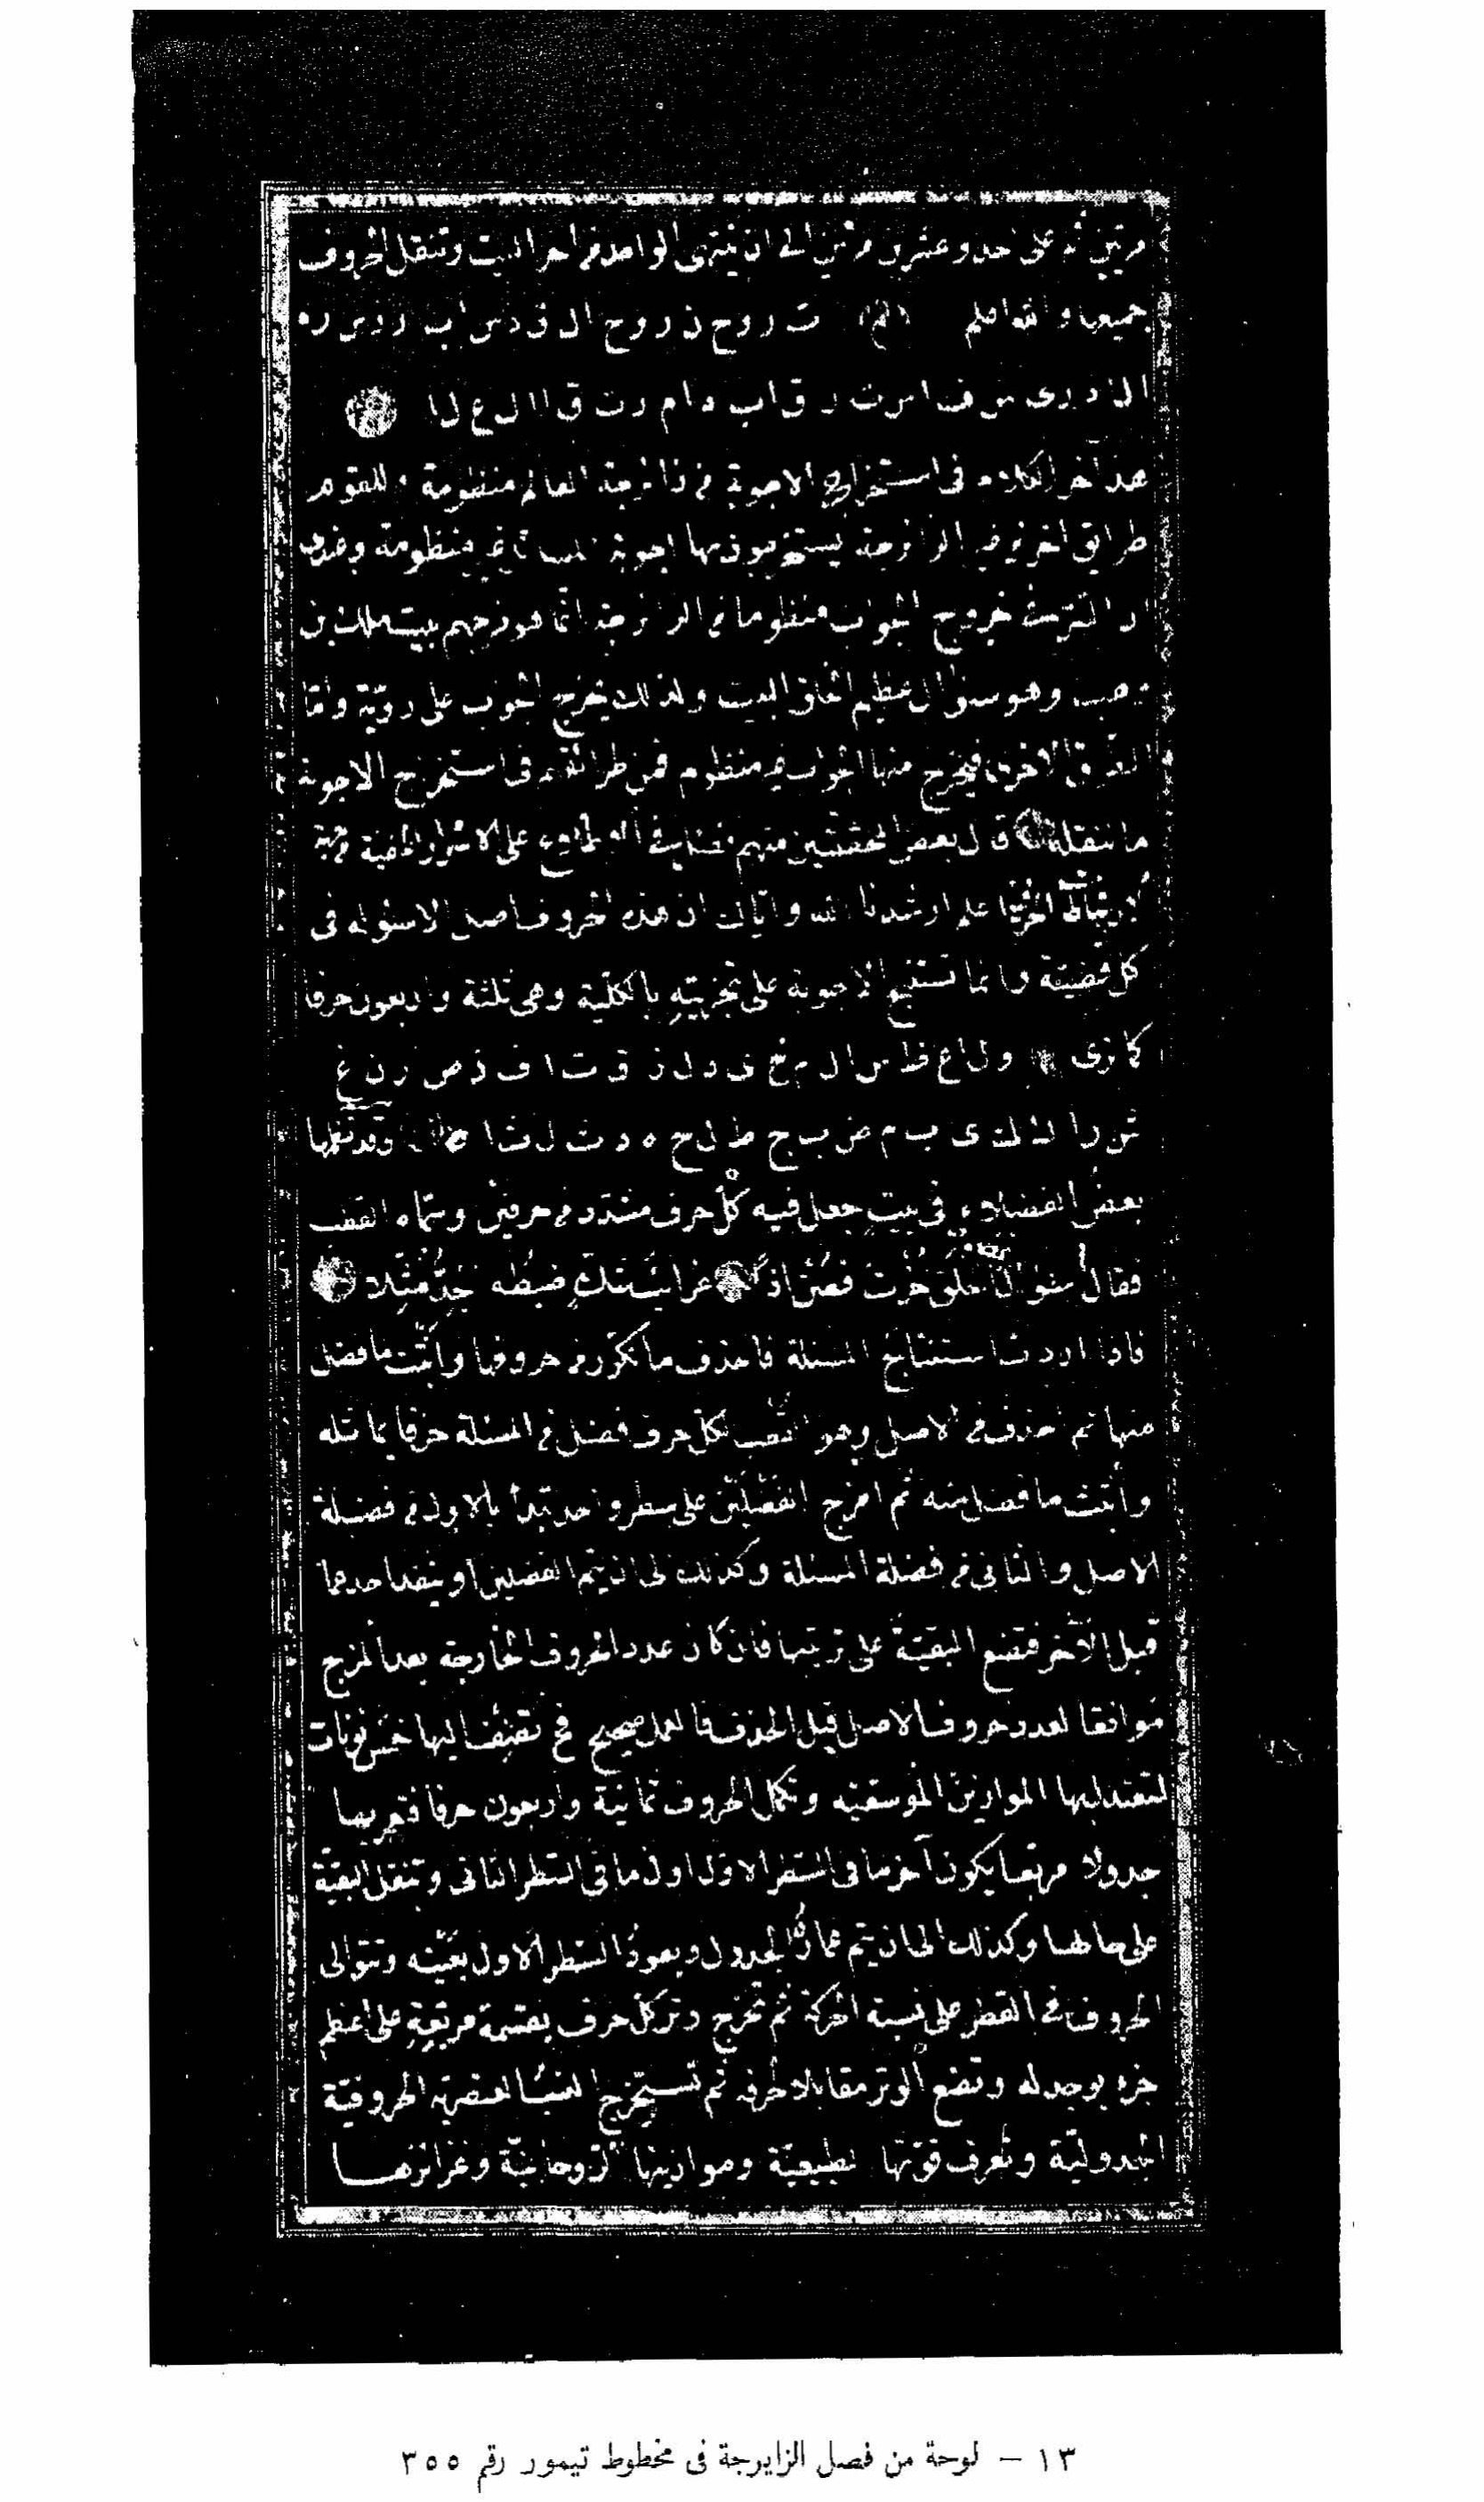 مرتين ثم على احد وعشرين مرتين الى ان ينتهى الواحد من اخر البيت وتنقل الحروف
جميعا والله اعلم ت ر و ح ن ر و ح ال ق د س
هذا آخر الكلام فى استخراج الاجوبة من زايرجة العالم منظومة وللقوم
طرايق اخرى من الزايرجة يستخرجون بها اجوبة المسائل غير منظومة وعندهم
ان السر فى خروج الجواب منظوما من الزايرجة انما هو مزجهم ببيت ملك بن
وهيب وهو سؤال عظيم الخلق البيت ولذلك يخرج الجواب على رويه واما
الطرق الاخرى فيخرج منها الجواب غير منظوم فمن طرائقهم فى استخراج الاجوبة
ما ننقله قال بعض المحققين منهم فصل فى الاطلاع على الاسرار الخفية من جهة
الارتباطات الحرفية اعلم ارشدنا الله واياك ان هذه الحروف اصل الاسئلة فى
كل قضية وانما تستنتج الاجوبة على تجزيته بالكلية وهى ثلثة واربعون حرفا
كما ترى و ل ا ع ظ س ا ل م خ ى د ل ز ق ت ا ف ذ ص ر ن غ
ش ر ا ك ك ى ب م ض ب ج ط ل ج ه د ث ل ث ا وقد نظمها
بعض الفضلاء فى بيت جعل فيه كل حرف مشدد من حرفين وسماه القطب
فقال سؤال عظيم الخلق حزت فصن اذن غرائب شك ضبطه الجد مثلا
فاذا اردت استنتاج المسئلة فاحذف ما تكرر من حروفها واثبت ما فضل
منها ثم احذف من الاصل وهو القطب لكل حرف فضل من المسئلة حرفا يماثله
واثبت ما فضل منه ثم امزج الفضلين على سطر واحد تبدأ بالاول من فضلة
الاصل والثانى من فضلة المسئلة وكذلك الى ان يتم الفضلين او ينفد احدهما
قبل الآخر فتضع البقية على ترتيبها فان كان عدد الحروف الخارجة بعد المزج
موافقا لعدد حروف الاصل قبل الحذف فالعمل صحيح فح تضيف اليها خمس نونات
لتعتدل بها الموازين الموسقية وتكمل الحروف ثمانية واربعون حرفا فتعمر بها
جدولا مربعا يكون آخر ما فى السطر الاول اول ما فى السطر الثانى وتنقل البقية
على حالها وكذلك الى ان يتم عمارة الجدول ويعود السطر الاول بعينه وتتوالى
الحروف فى القطر على نسبة الحركة ثم تخرج وتر كل حرف بقسمة مربعة على اعظم
جزء يوجد له وتضع الوتر مقابلا لحرفه ثم تستخرج النسب العنصرية الحروفية
الجدولية وتعرف قوتها الطبيعية وموازينها الروحانية وغرائزها
١٣ – لوحة من فصل الزايرجة فى مخطوط تيمور رقم ٣٥٥